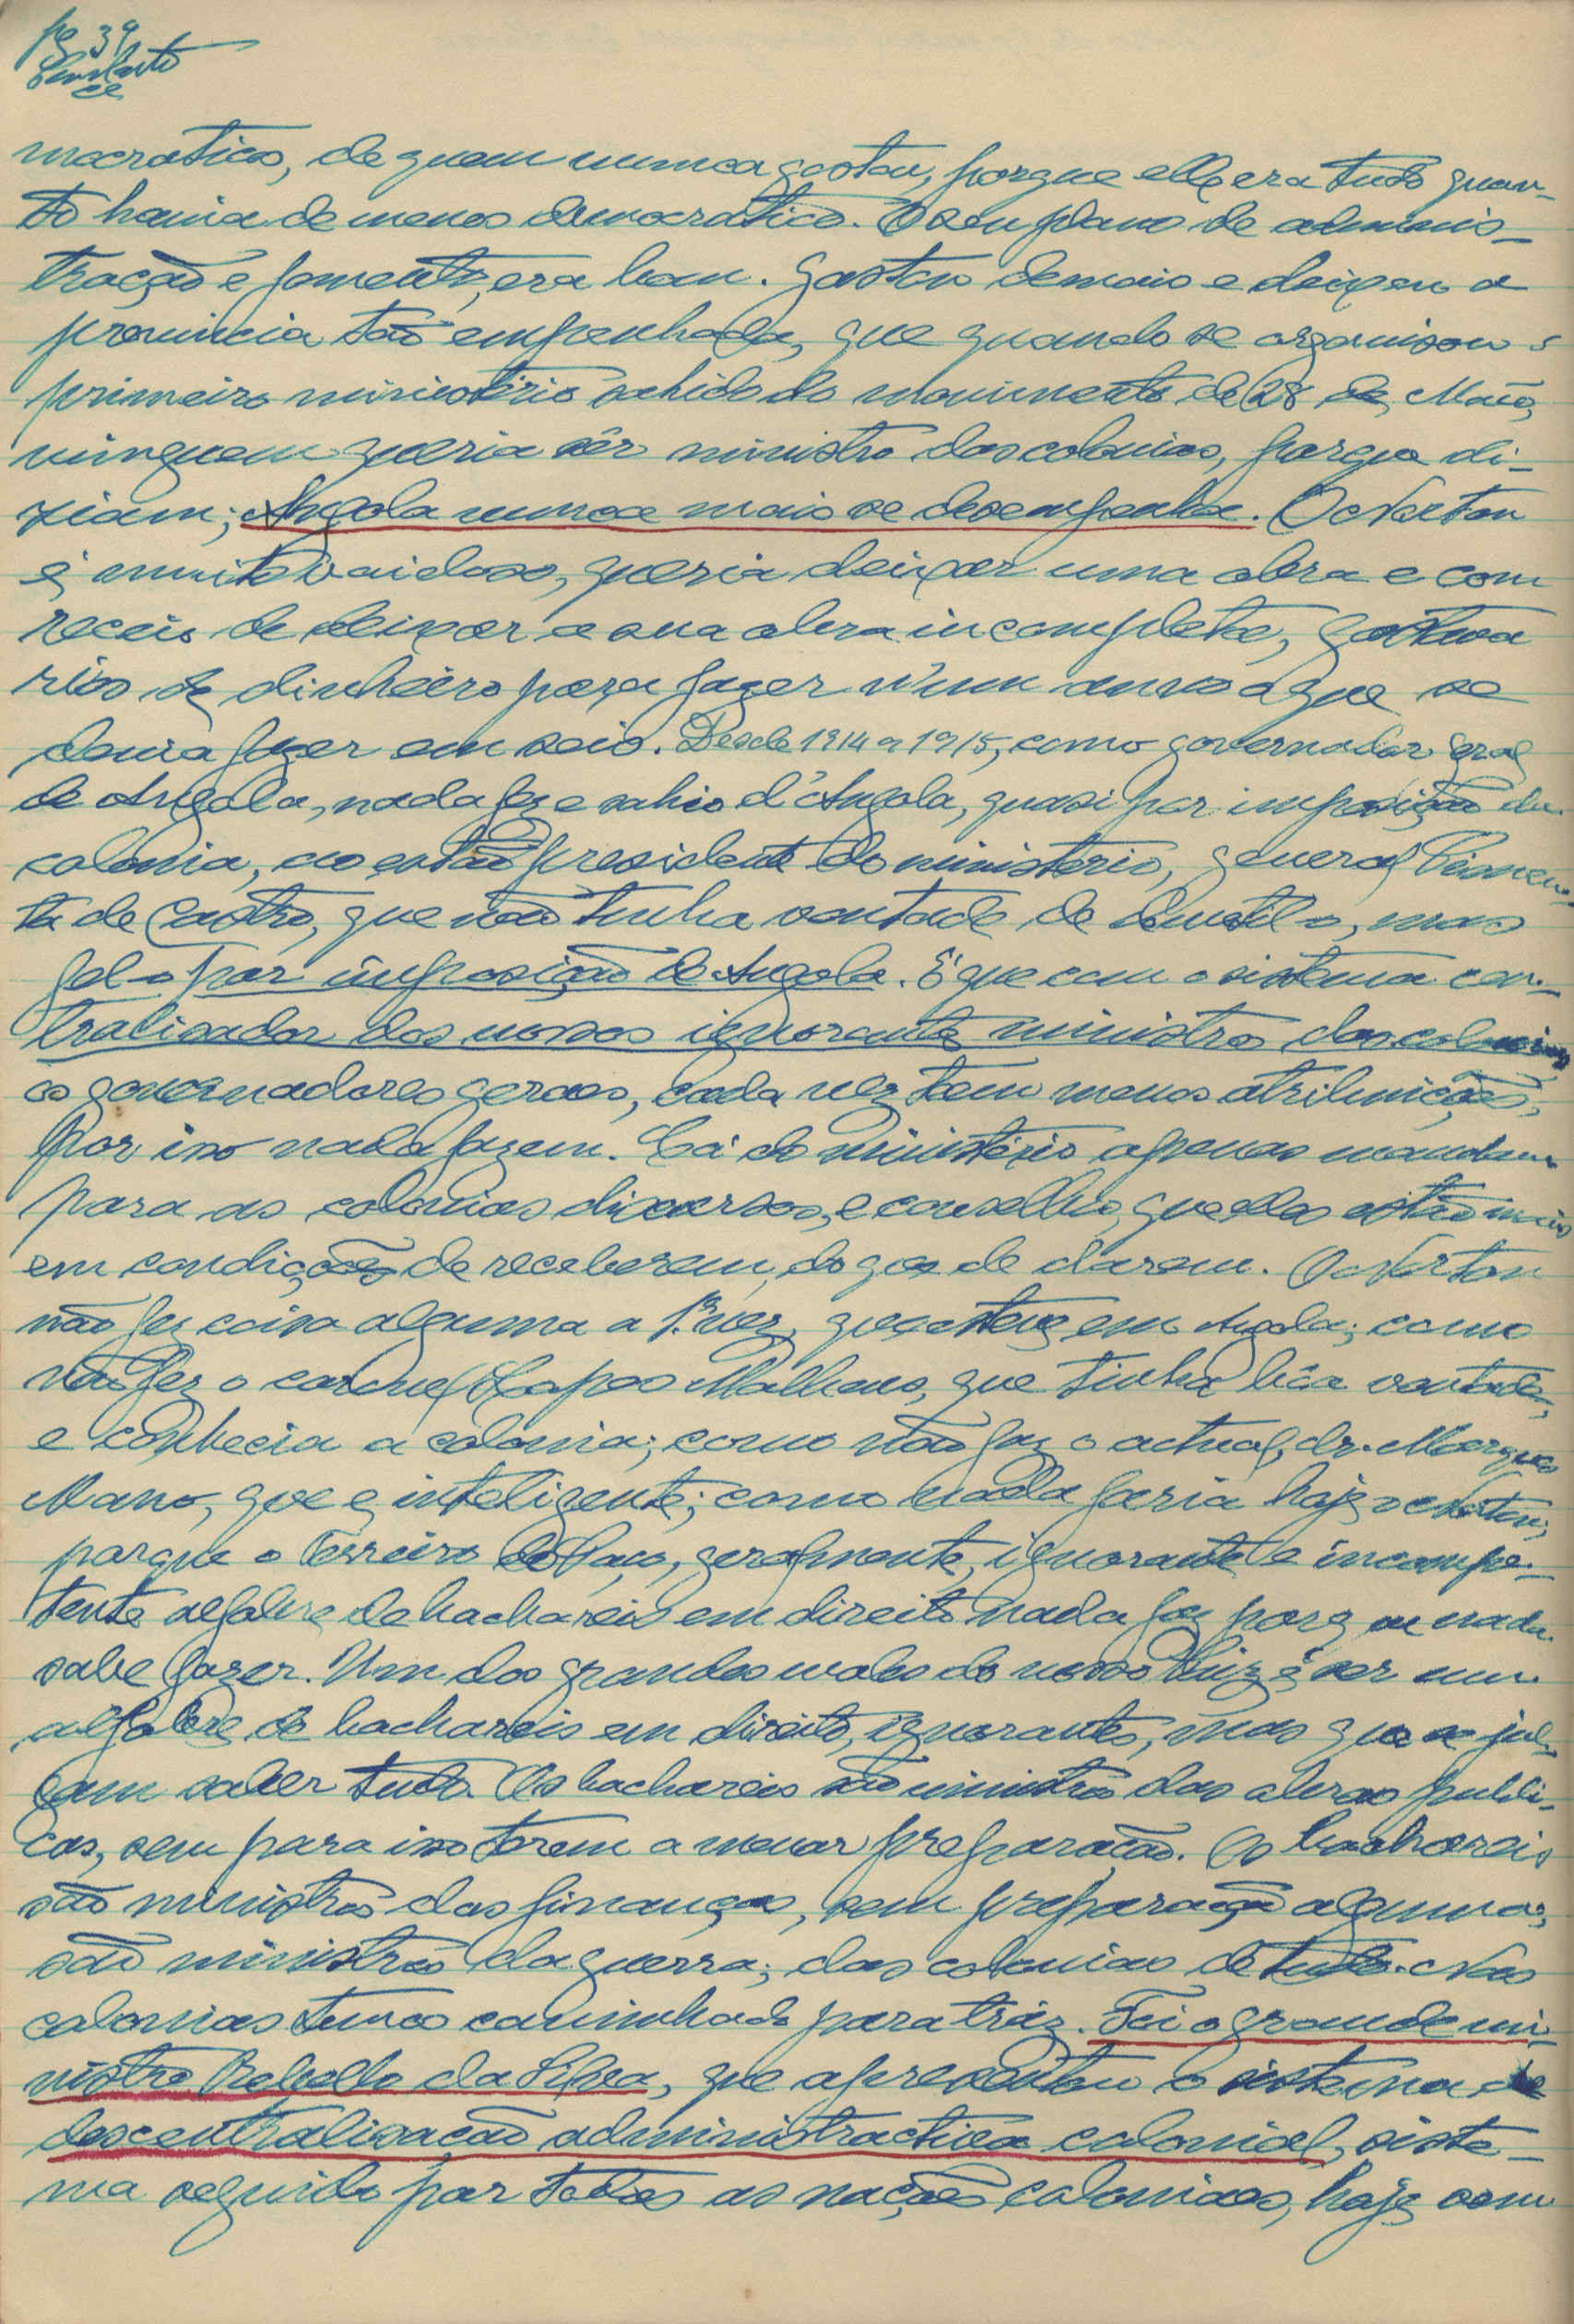 pg 39
mocratico, de quem nunca gostou, porque elle era tudo quan-
to havia de menos democratico. O seu plano de adminis-
tração e fomento, era bom. Gastou demais e deixou a
provincia tão empenhada, que quando se organisou o
primeiro ministério sahido do movimento de 28 de Maio,
ninguem queria sêr ministro das colonias, porque di-
ziam; Angola nunca mais se desempenha. O Norton
é muito vaidoso, queria deixar uma obra e com
receio de deixar a sua obra incompleta, gastava
rios de dinheiro para fazer n'um anno o que se
devia fazer em seis. Desde 1914 a 1915, como governador geral
de Angola, nada fez e sahio d'Angola, quasi por imposição da
colonia, ao então presidente do ministerio, general Pimen-
ta de Castro, que não tinha vontade de demitil-o, mas
fel-o por imposição de Angola. É que com o sistema cen-
tralisador dos nossos ignorantes ministros das colonias
os governadores geraes, cada vez tem menos atribuições,
por isso nada fazem. Cá do ministério apenas mandam
para as colonias discursos, e conselhos, que ellas estão mais
em condições de receberem, do que de darem. O Norton
não fez coisa alguma a 1.ª vez, que esteve em Angola; como
não fez o coronel Lopes Matheus, que tinha bôa vontade,
e conhecia a colonia; como não faz o actual, dr. Marques
Mano, que é inteligente; como nada faria hoje o Norton;
porque o Terreiro do Paço, geralmente, ignorante e incompe-
tente alfobre de bachareis em direito nada faz porque nada
sabe fazer. Um dos grandes males do nosso Paiz é ser um
alfobre de bachareis em direito, ignorantes, mas que se jul-
gam saber tudo. Os bachareis são ministros das obras publi-
cas, sem para isso terem a menor preparação. Os bachareis
são ministros das finanças, sem preparação alguma;
são ministros da guerra; das colonias de tudo. Nas
colonias temos caminhado para tráz. Foi o grande mi-
nistro Rebello da Silva, que apresentou o sistema de
descentralisação administractiva colonial, siste-
ma seguido por todas as nações coloniaes, hoje com